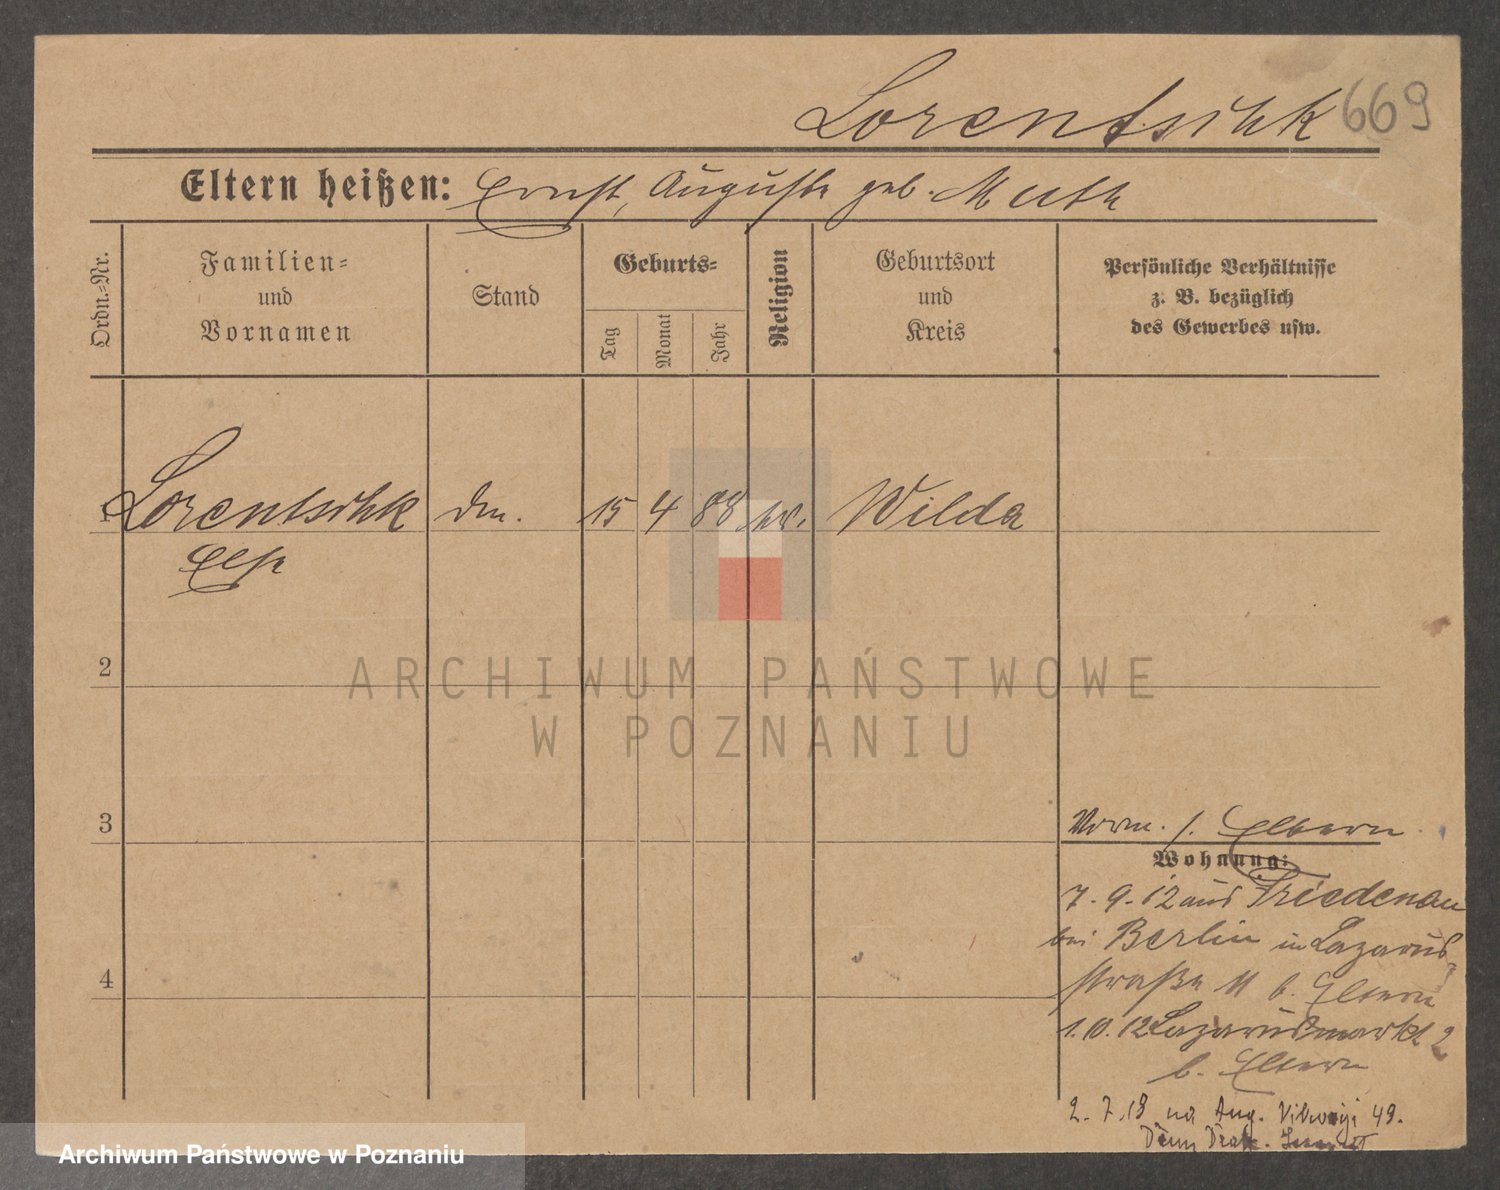 Lorentschk 669
Eltern heißen: Ernst, Auguste geb. Muth
Ordn.=Nr.
Familien=
und
Vornamen
Stand
Geburts=
Tag
Monat
Jahr
Religion
Geburtsort
und
Kreis
Persönliche Verhältnisse
z. B. bezüglich
des Gewerbes usw.
1 Lorentschk 15 4 88 Wilda
Else
2
ARCHIWUM PAŃSTWOWE
W POZNANIU
3
Vorm. s. Eltern
Wohnung:
7.9.12 aus Friedenau
bei Berlin in Lazarus-
straße 11 b. Eltern
4
1.10.12 Lazarusmarkt 2
b. Eltern
2.7.18 na Aug. 49.
Archiwum Państwowe w Poznaniu